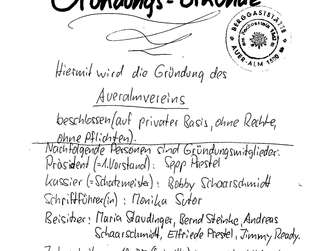 Gründungs-Urkunde
BERGGASTSTÄTTE
AUER-ALM 1600
Hiermit wird die Gründung des
Aueralmvereins
beschlossen (auf privater Basis, ohne Rechte,
ohne Pflichten).
Nachfolgende Personen sind Gründungsmitglieder:
Präsident (=1. Vorstand): Sepp Prestel
Kassier (=Schatzmeister): Bobby Schaarschmidt
Schriftführer(in): Monika Sutor
Beisitzer: Maria Staudinger, Bernd Steinke, Andreas
Schaarschmidt, Elfriede Prestel, Jimmy Ready.